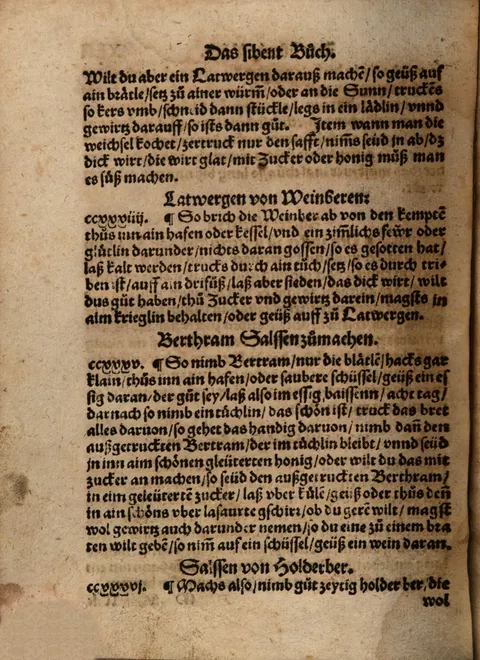 Das sibent Bůch.
Wilt du aber ein Latwergen darauß machē/so geüß auf
ain bråtle/setz zů ainer würm/oder an die Sunn/truckēs
so kers vmb/schneid dann stückle/legs in ein lådlin/vnnd
gewirtz darauff/so ists dann gůt. Item wann man die
weichsel kochet/zertruck nur den safft/nim̄s seüd in ab/dz
dick wirt/die wirt glat/mit Zucker oder honig můß man
es süß machen.
Latwergen von Weinberen:
ccxxxiiij. ¶ So brich die Weinber ab von den kemptē
thůs inn ain hafen oder kessel/vnd ein zim̄lichs fewr oder
glůtlin darunder/nichts daran gossen/so es gesotten hat/
laß kalt werden/trucks durch ain tůch/setz/so es durch tri-
ben ist/auff ain drifůß/laß aber sieden/das dick wirt/ wilt
dus gůt haben/thů Zucker vnd gewirtz darein/magsts in
aim krieglin behalten/oder geüß auff zů Latwergen.
Berthram Salssen zůmachen.
ccxxxv. ¶ So nimb Bertram/nur die blåtlē/hacks gar
klain/thůs inn ain hafen/oder saubere schüssel/geüß ein es
sig daran/der gůt sey/laß also im essig baissenn/ acht tag/
darnach so nimb ein tůchlin/ das schön ist/ truck das bret
alles daruon/so gehet das handig daruon/ nimb dan̄ den
außgetruckten Bertram/der im tůchlin bleibt/ vnnd seüd
jn inn aim schönen gleüterten honig/oder wilt du das mit
zucker an machen/so seüd den außgetruckten Berthram/
in eim geleütertē zucker/ laß vber kůlē/geüß oder thůs den̄
in ain schöns vber lasurts gschirr/ob du gerē wilt/ magst
wol gewirtz auch darunder nemen/so du eine zů einem bra
ten wilt gebē/so nim̄ auf ein schüssel/geüß ein wein daran.
Salssen von Holderber.
ccxxxvj. ¶ Machs also/nimb gůt zeytig holder ber/die
wol